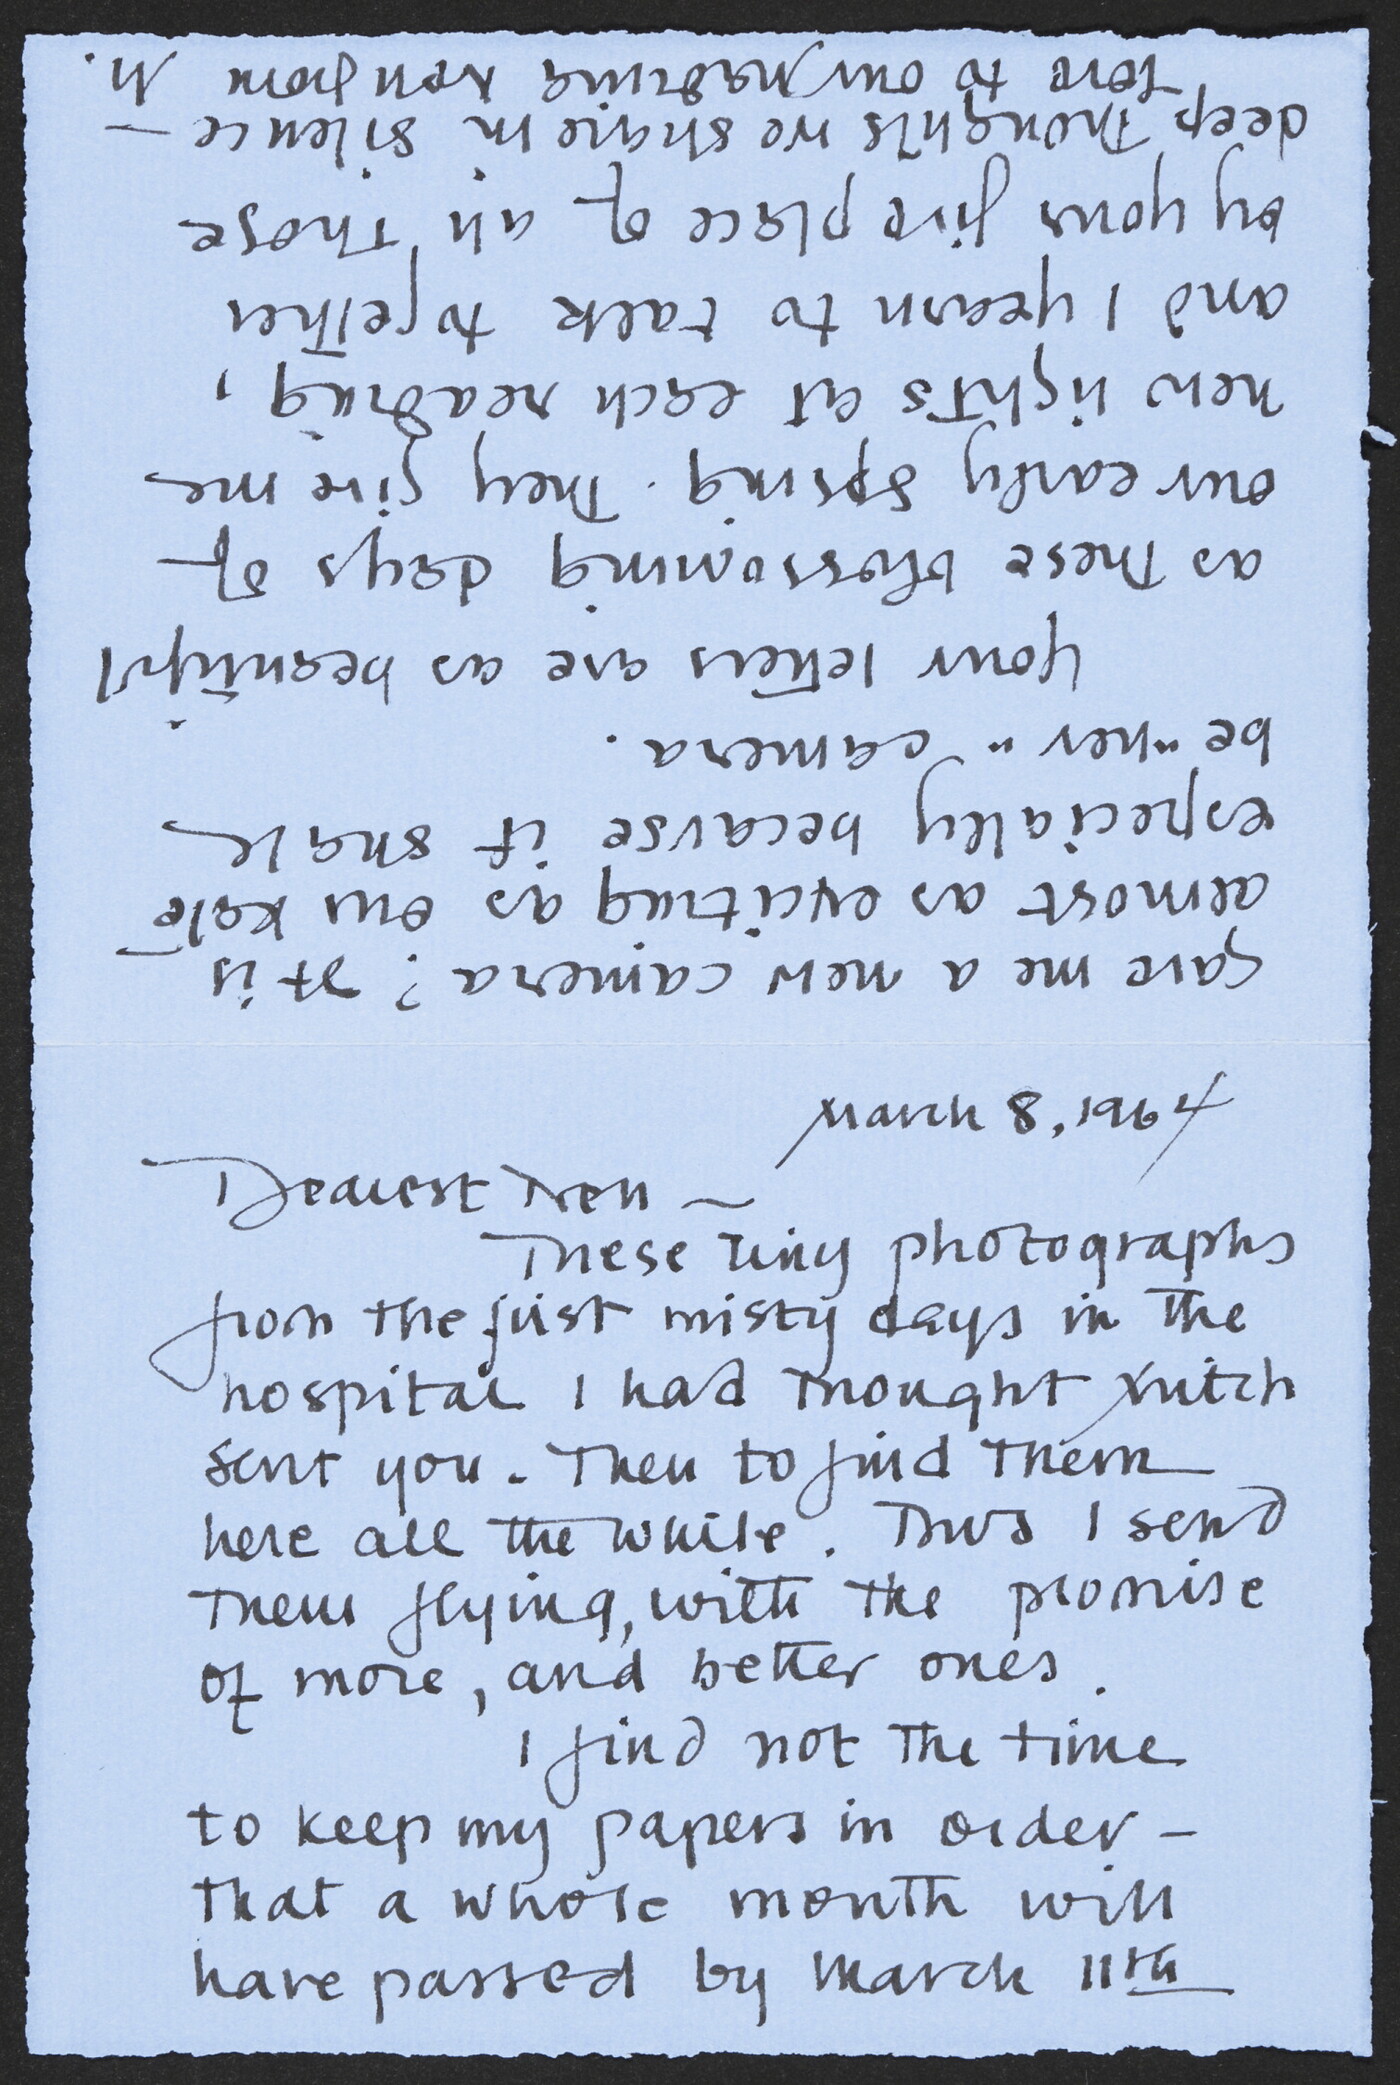 March 8, 1964
Dearest Nell —
These tiny photographs
from the first misty days in the
hospital I had thought Mitch
sent you. Then to find them
here all the while. Thus I send
them flying, with the promise
of more, and better ones.
I find not the time
to keep my papers in order —
that a whole month will
have passed by March 11th
gave me a new camera? It is
almost as exciting as our Kate
especially because it shall
be "her" camera.
Your letters are as beautiful
as these blossoming days of
our early spring. They give me
new lights at each reading,
and I yearn to talk together
by your fire place of all those
deep thoughts we share in silence —
love to our Madrina Nell from M.